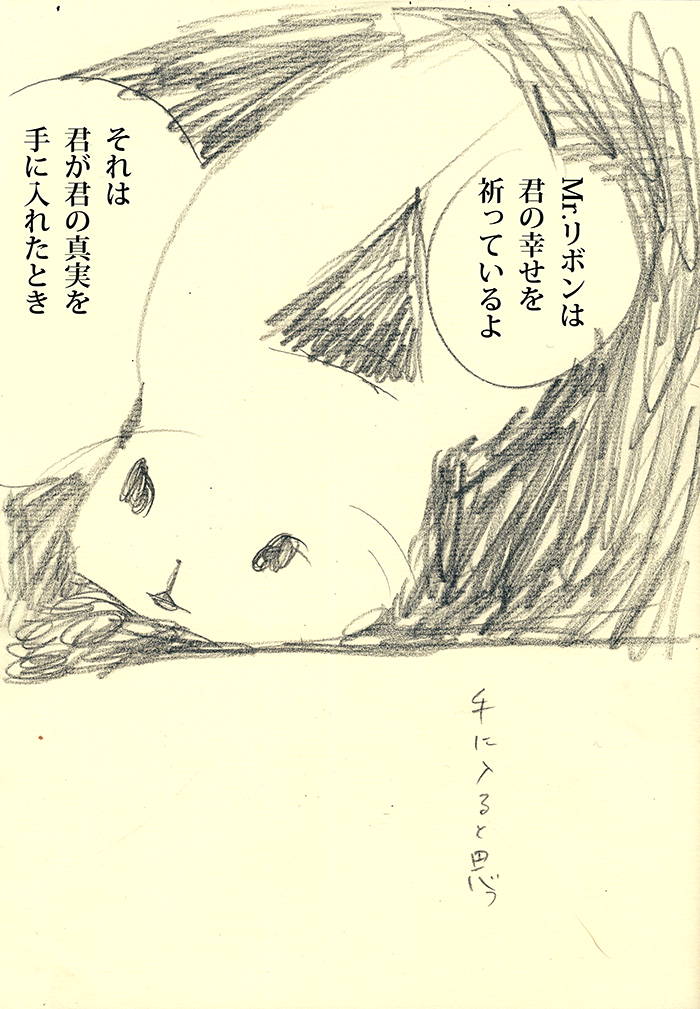 Mr.リボンは
君の幸せを
祈っているよ
それは
君が君の真実を
手に入れたとき
手に入ると思う